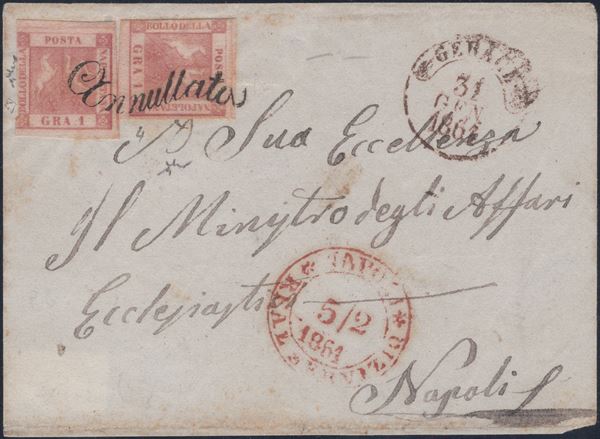 POSTA
GRA 1
BOLLO DELLA
POSTA
NAPOLETANA
GRA 1
Annullato
GERACE
31
GEN
1861
A Sua Eccellenza
Il Minystro degli Affari
Ecclesiastici
NAPOLI
5/2
1861
Napoli